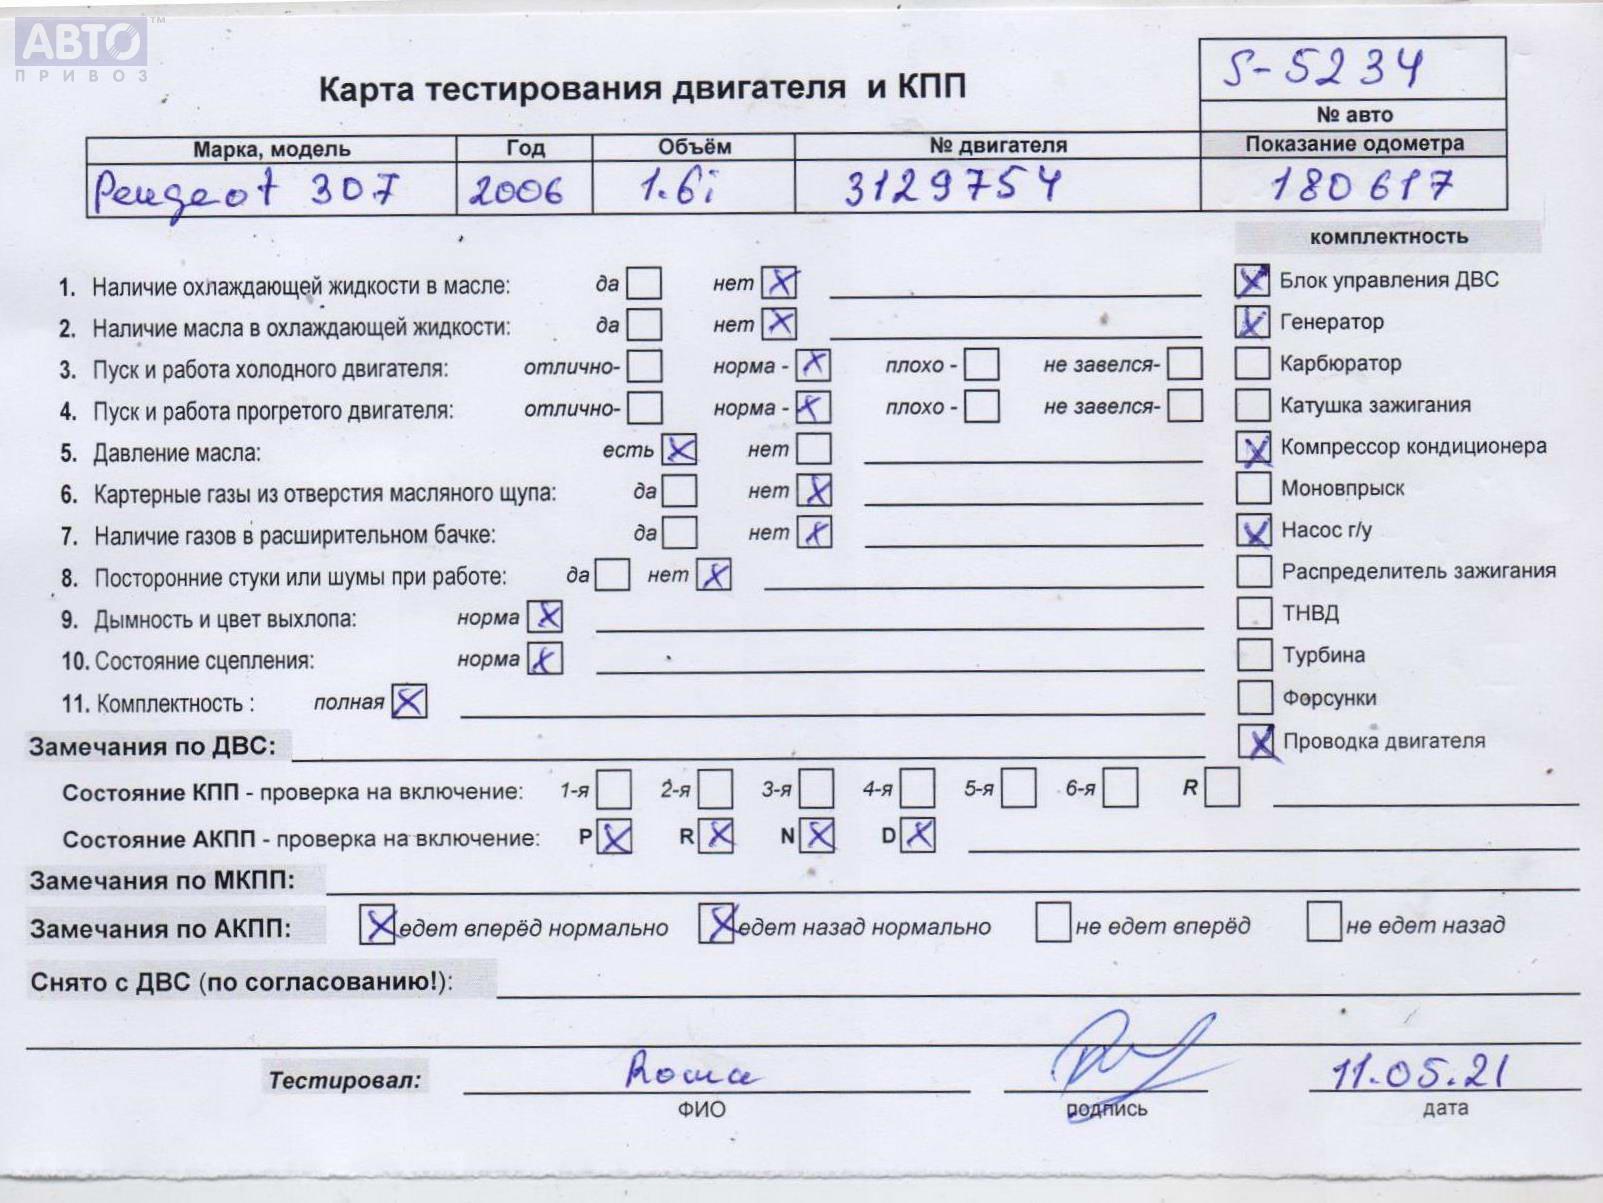 АВТО™
ПРИВОЗ
S-5234
Карта тестирования двигателя и КПП
№ авто
Марка, модель Год Объём № двигателя Показание одометра
Peugeot 307 2006 1.6i 3129754 180617
комплектность
1. Наличие охлаждающей жидкости в масле: да нет Блок управления ДВС
2. Наличие масла в охлаждающей жидкости: да нет Генератор
3. Пуск и работа холодного двигателя: отлично- норма - плохо - не завелся- Карбюратор
4. Пуск и работа прогретого двигателя: отлично- норма - плохо - не завелся- Катушка зажигания
5. Давление масла: есть нет Компрессор кондиционера
6. Картерные газы из отверстия масляного щупа: да нет Моновпрыск
7. Наличие газов в расширительном бачке: да нет Насос г/у
8. Посторонние стуки или шумы при работе: да нет Распределитель зажигания
9. Дымность и цвет выхлопа: норма ТНВД
10. Состояние сцепления: норма Турбина
11. Комплектность : полная Форсунки
Замечания по ДВС: Проводка двигателя
Состояние КПП - проверка на включение: 1-я 2-я 3-я 4-я 5-я 6-я R
Состояние АКПП - проверка на включение: P R N D
Замечания по МКПП:
Замечания по АКПП: едет вперёд нормально едет назад нормально не едет вперёд не едет назад
Снято с ДВС (по согласованию!):
Тестировал: Рома 11.05.21
ФИО подпись дата